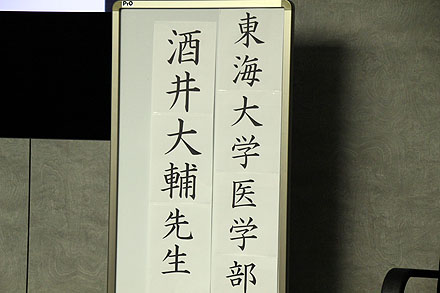 東海大学医学部
酒井大輔先生